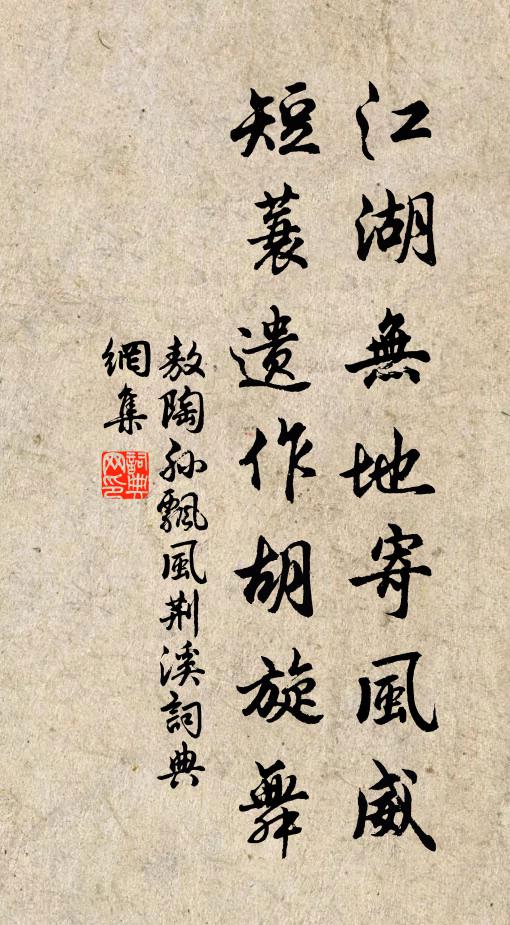 江湖無地寄風威
短蓑遺作胡旋舞
敖陶孙飄風荆溪詞典
網集
詞典
网印